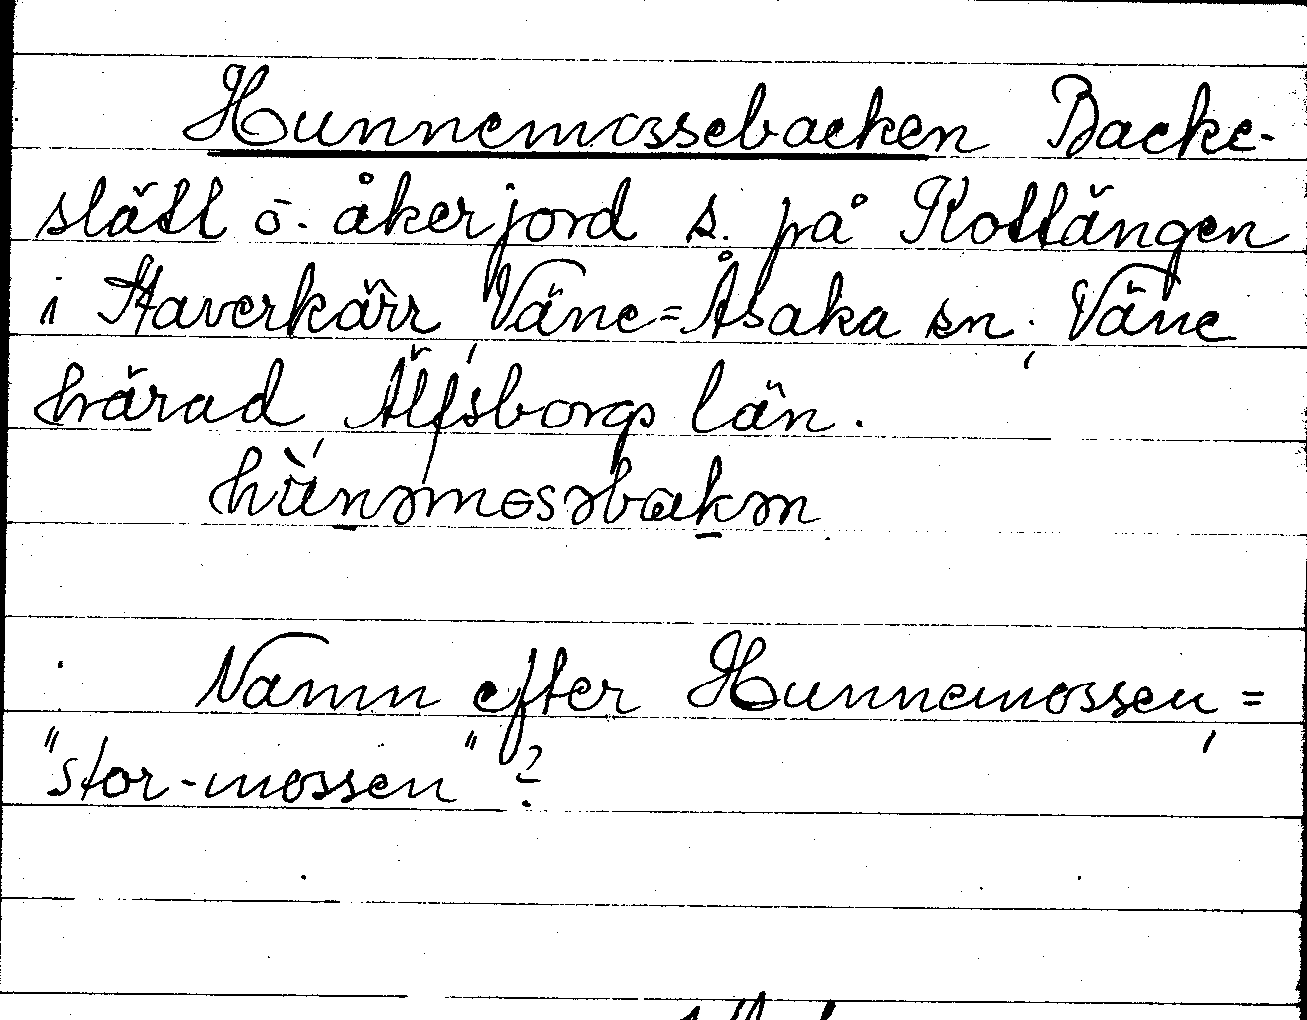 Hunnemossebacken Backe-
slätt o. åkerjord s. på Kotlängen
i Staverkärr, Väne=Åsaka sn., Väne
härad, Älfsborgs län.
Namn efter Hunnemossen, =
"stor-mossen"?